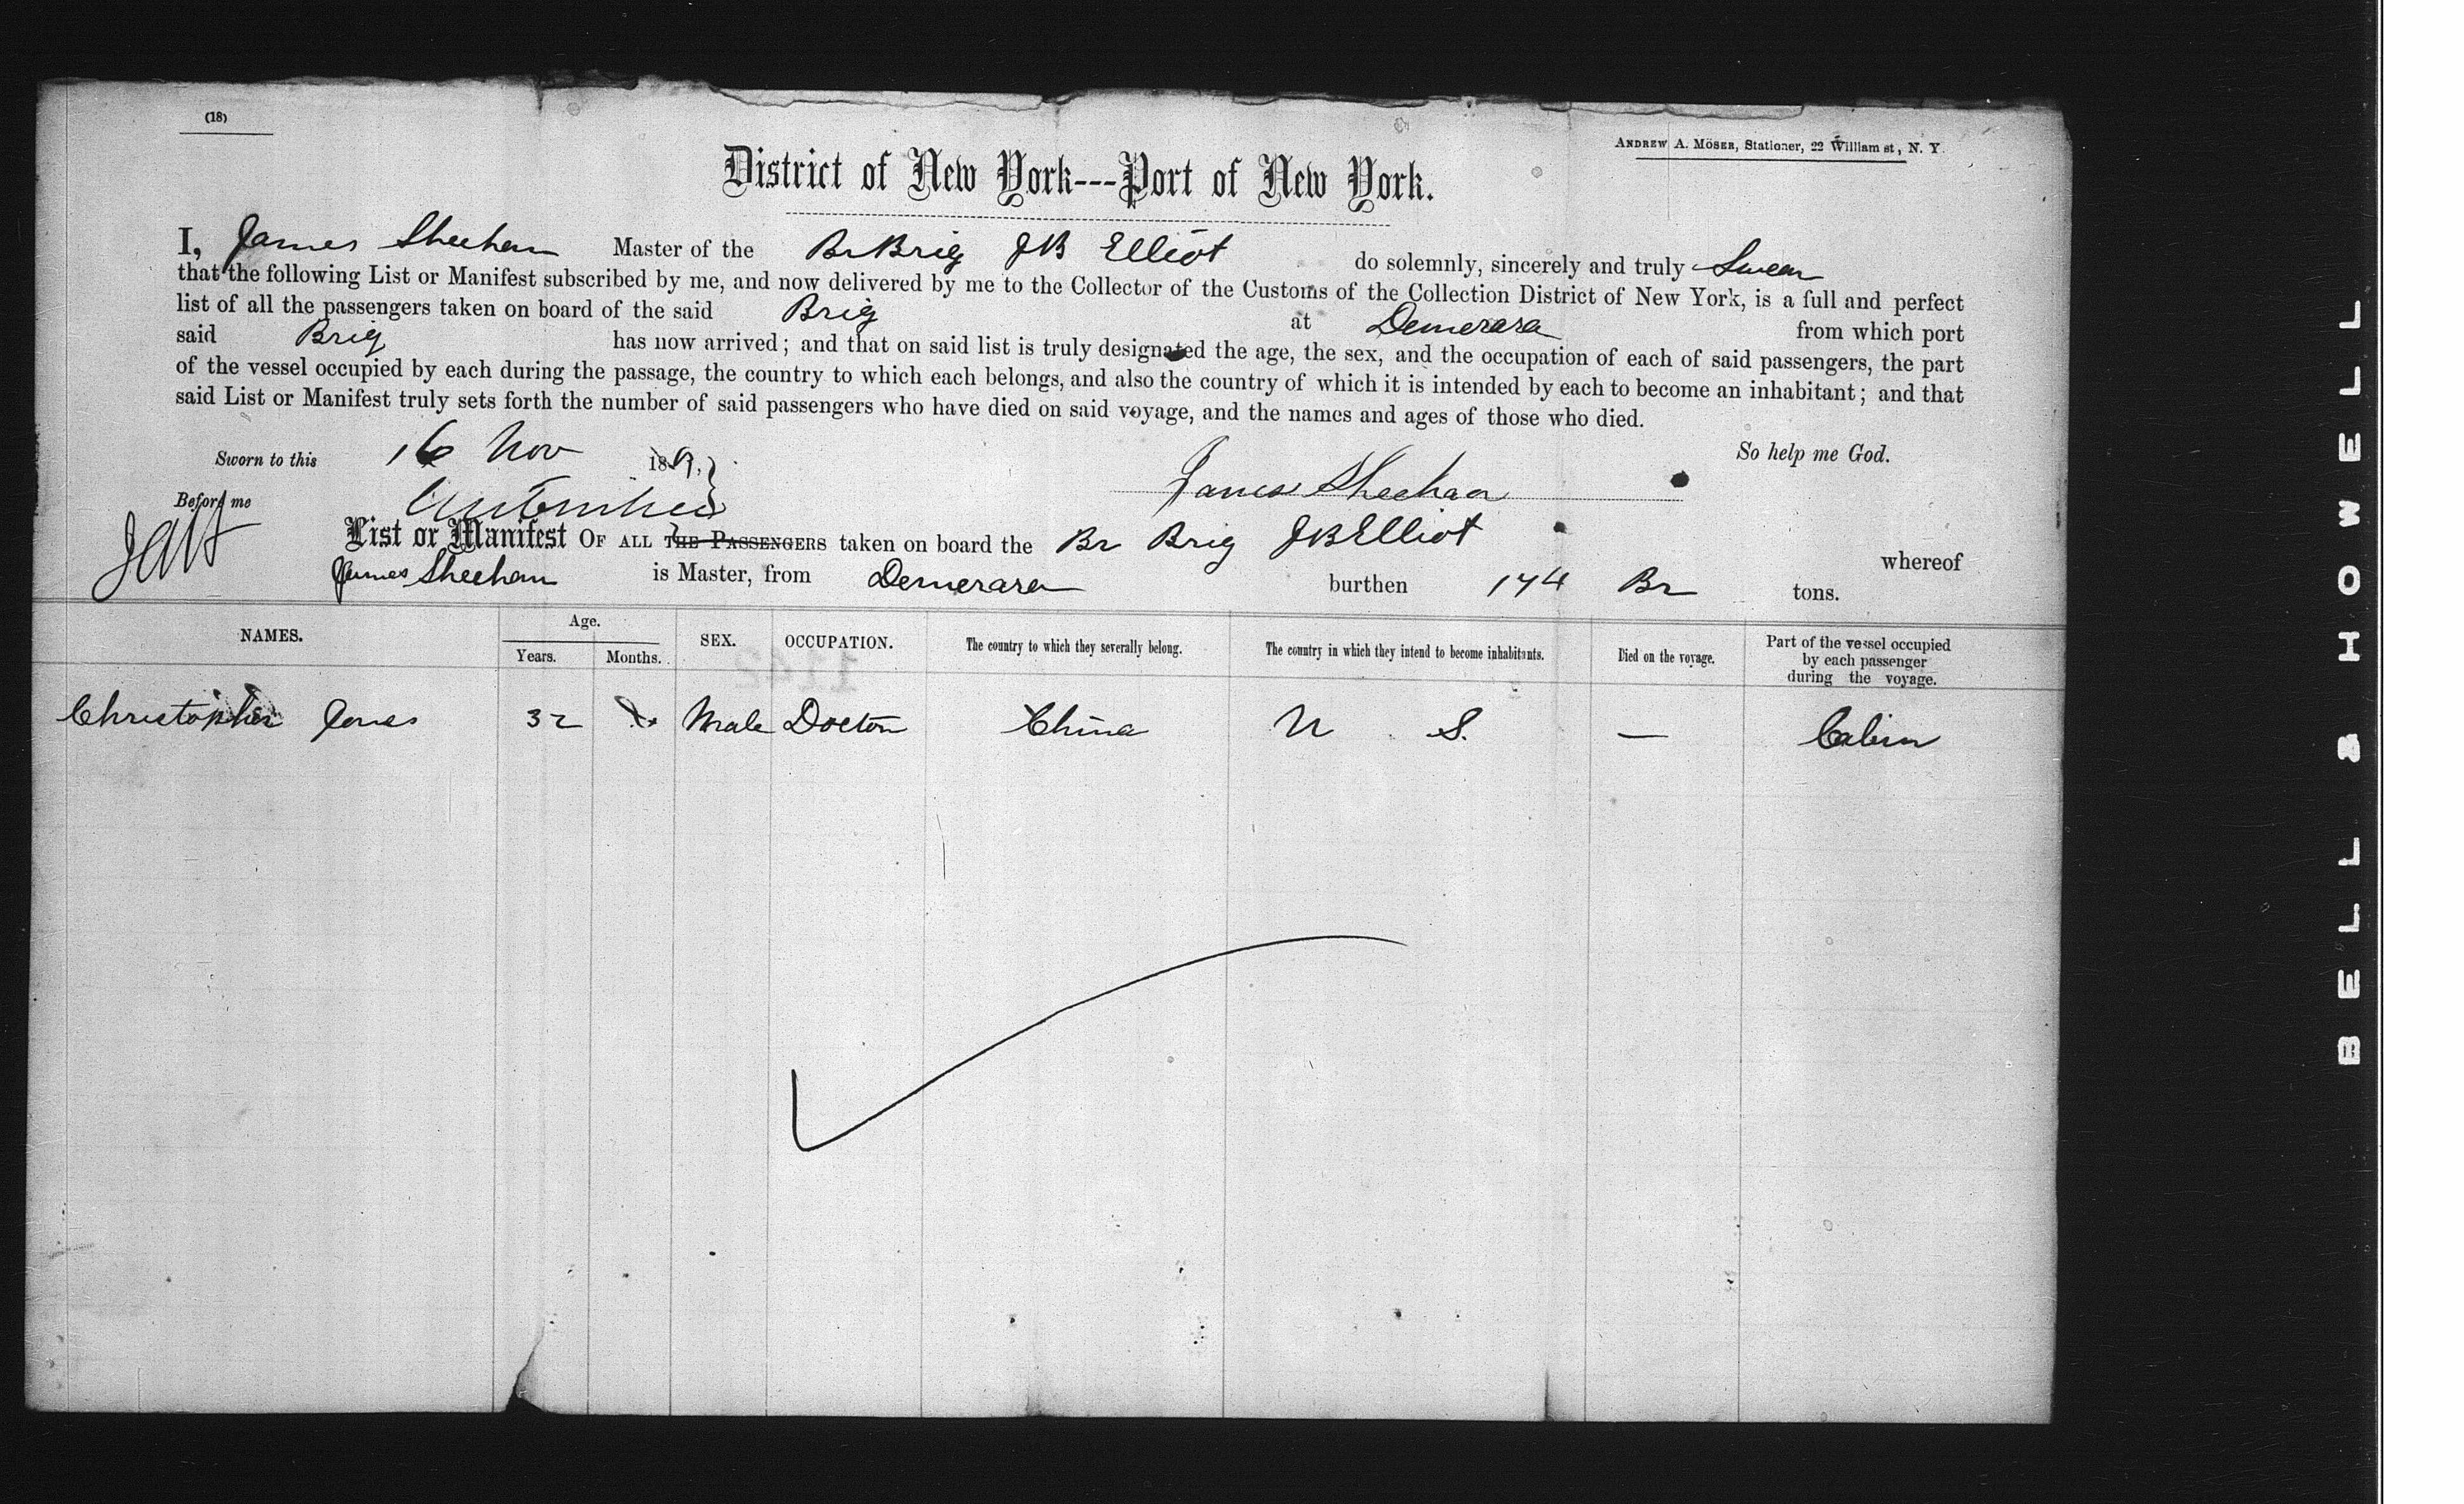 (18)
ANDREW A. MÖSER, Stationer, 22 William st, N. Y.
District of New York---Port of New York.
I, James Sheehan Master of the Br Brig J B Elliot do solemnly, sincerely and truly Swear
that the following List or Manifest subscribed by me, and now delivered by me to the Collector of the Customs of the Collection District of New York, is a full and perfect
list of all the passengers taken on board of the said Brig at Demerara from which port
said Brig has now arrived; and that on said list is truly designated the age, the sex, and the occupation of each of said passengers, the part
of the vessel occupied by each during the passage, the country to which each belongs, and also the country of which it is intended by each to become an inhabitant; and that
said List or Manifest truly sets forth the number of said passengers who have died on said voyage, and the names and ages of those who died.
So help me God.
Sworn to this 16 Nov
James Sheehan
Before me
List or Manifest OF ALL THE PASSENGERS taken on board the Br Brig J B Elliot whereof
James Sheehan is Master, from Demerara burthen 174 Br tons.
NAMES. Age. Years. Months. SEX. OCCUPATION. The country to which they severally belong. The country in which they intend to become inhabitants. Died on the voyage. Part of the vessel occupied by each passenger during the voyage.
Christopher Jones 32 Male Doctor China U S. — Cabin
BELL & HOWELL